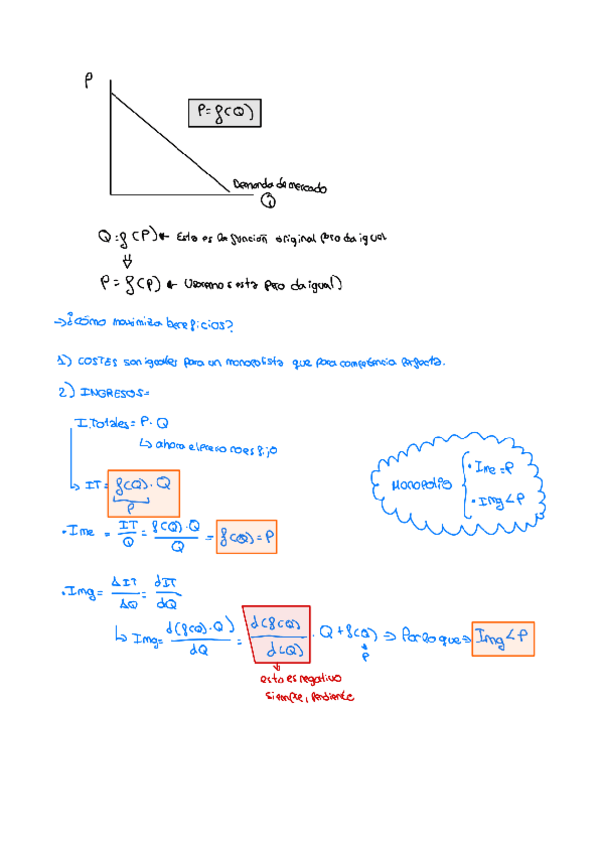 P
P = f(Q)
Demanda de mercado
Q
Q = f(P) ← Esta es la función original pero da igual
⇓
P = f(P) ← Usaremos esta pero da igual)
→ ¿cómo maximiza beneficios?
1) COSTES son iguales para un monopolista que para competencia perfecta.
2) INGRESOS=
I.Totales = P · Q
↳ ahora el precio no es fijo
↳ IT = f(Q) · Q
P
MONOPOLIO
· Ime = P
· Img < P
· Ime = IT/Q = f(Q) · Q / Q = f(Q) = P
· Img = ΔIT/ΔQ = dIT/dQ
↳ Img = d(f(Q) · Q)/dQ = d(f(Q))/d(Q) · Q + f(Q) ⇒ Por lo que ⇒ Img < P
P
esto es negativo
siempre, pendiente